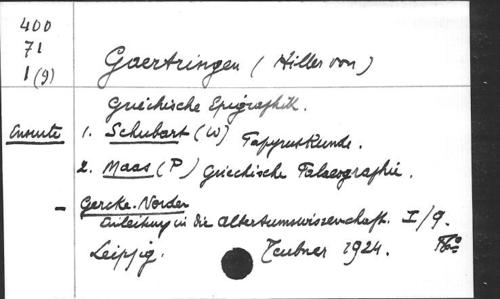 400
71
1(9)
Gaertringen (Hiller von)
Griechische Epigraphik.
Ensuite 1. Schubart (W) Papyruskunde.
2. Maas (P) Griechische Palaeographie.
- Gercke-Norden
Einleitung in die Altertumswissenschaft. I/9.
Leipzig. Teubner 1924. 8o